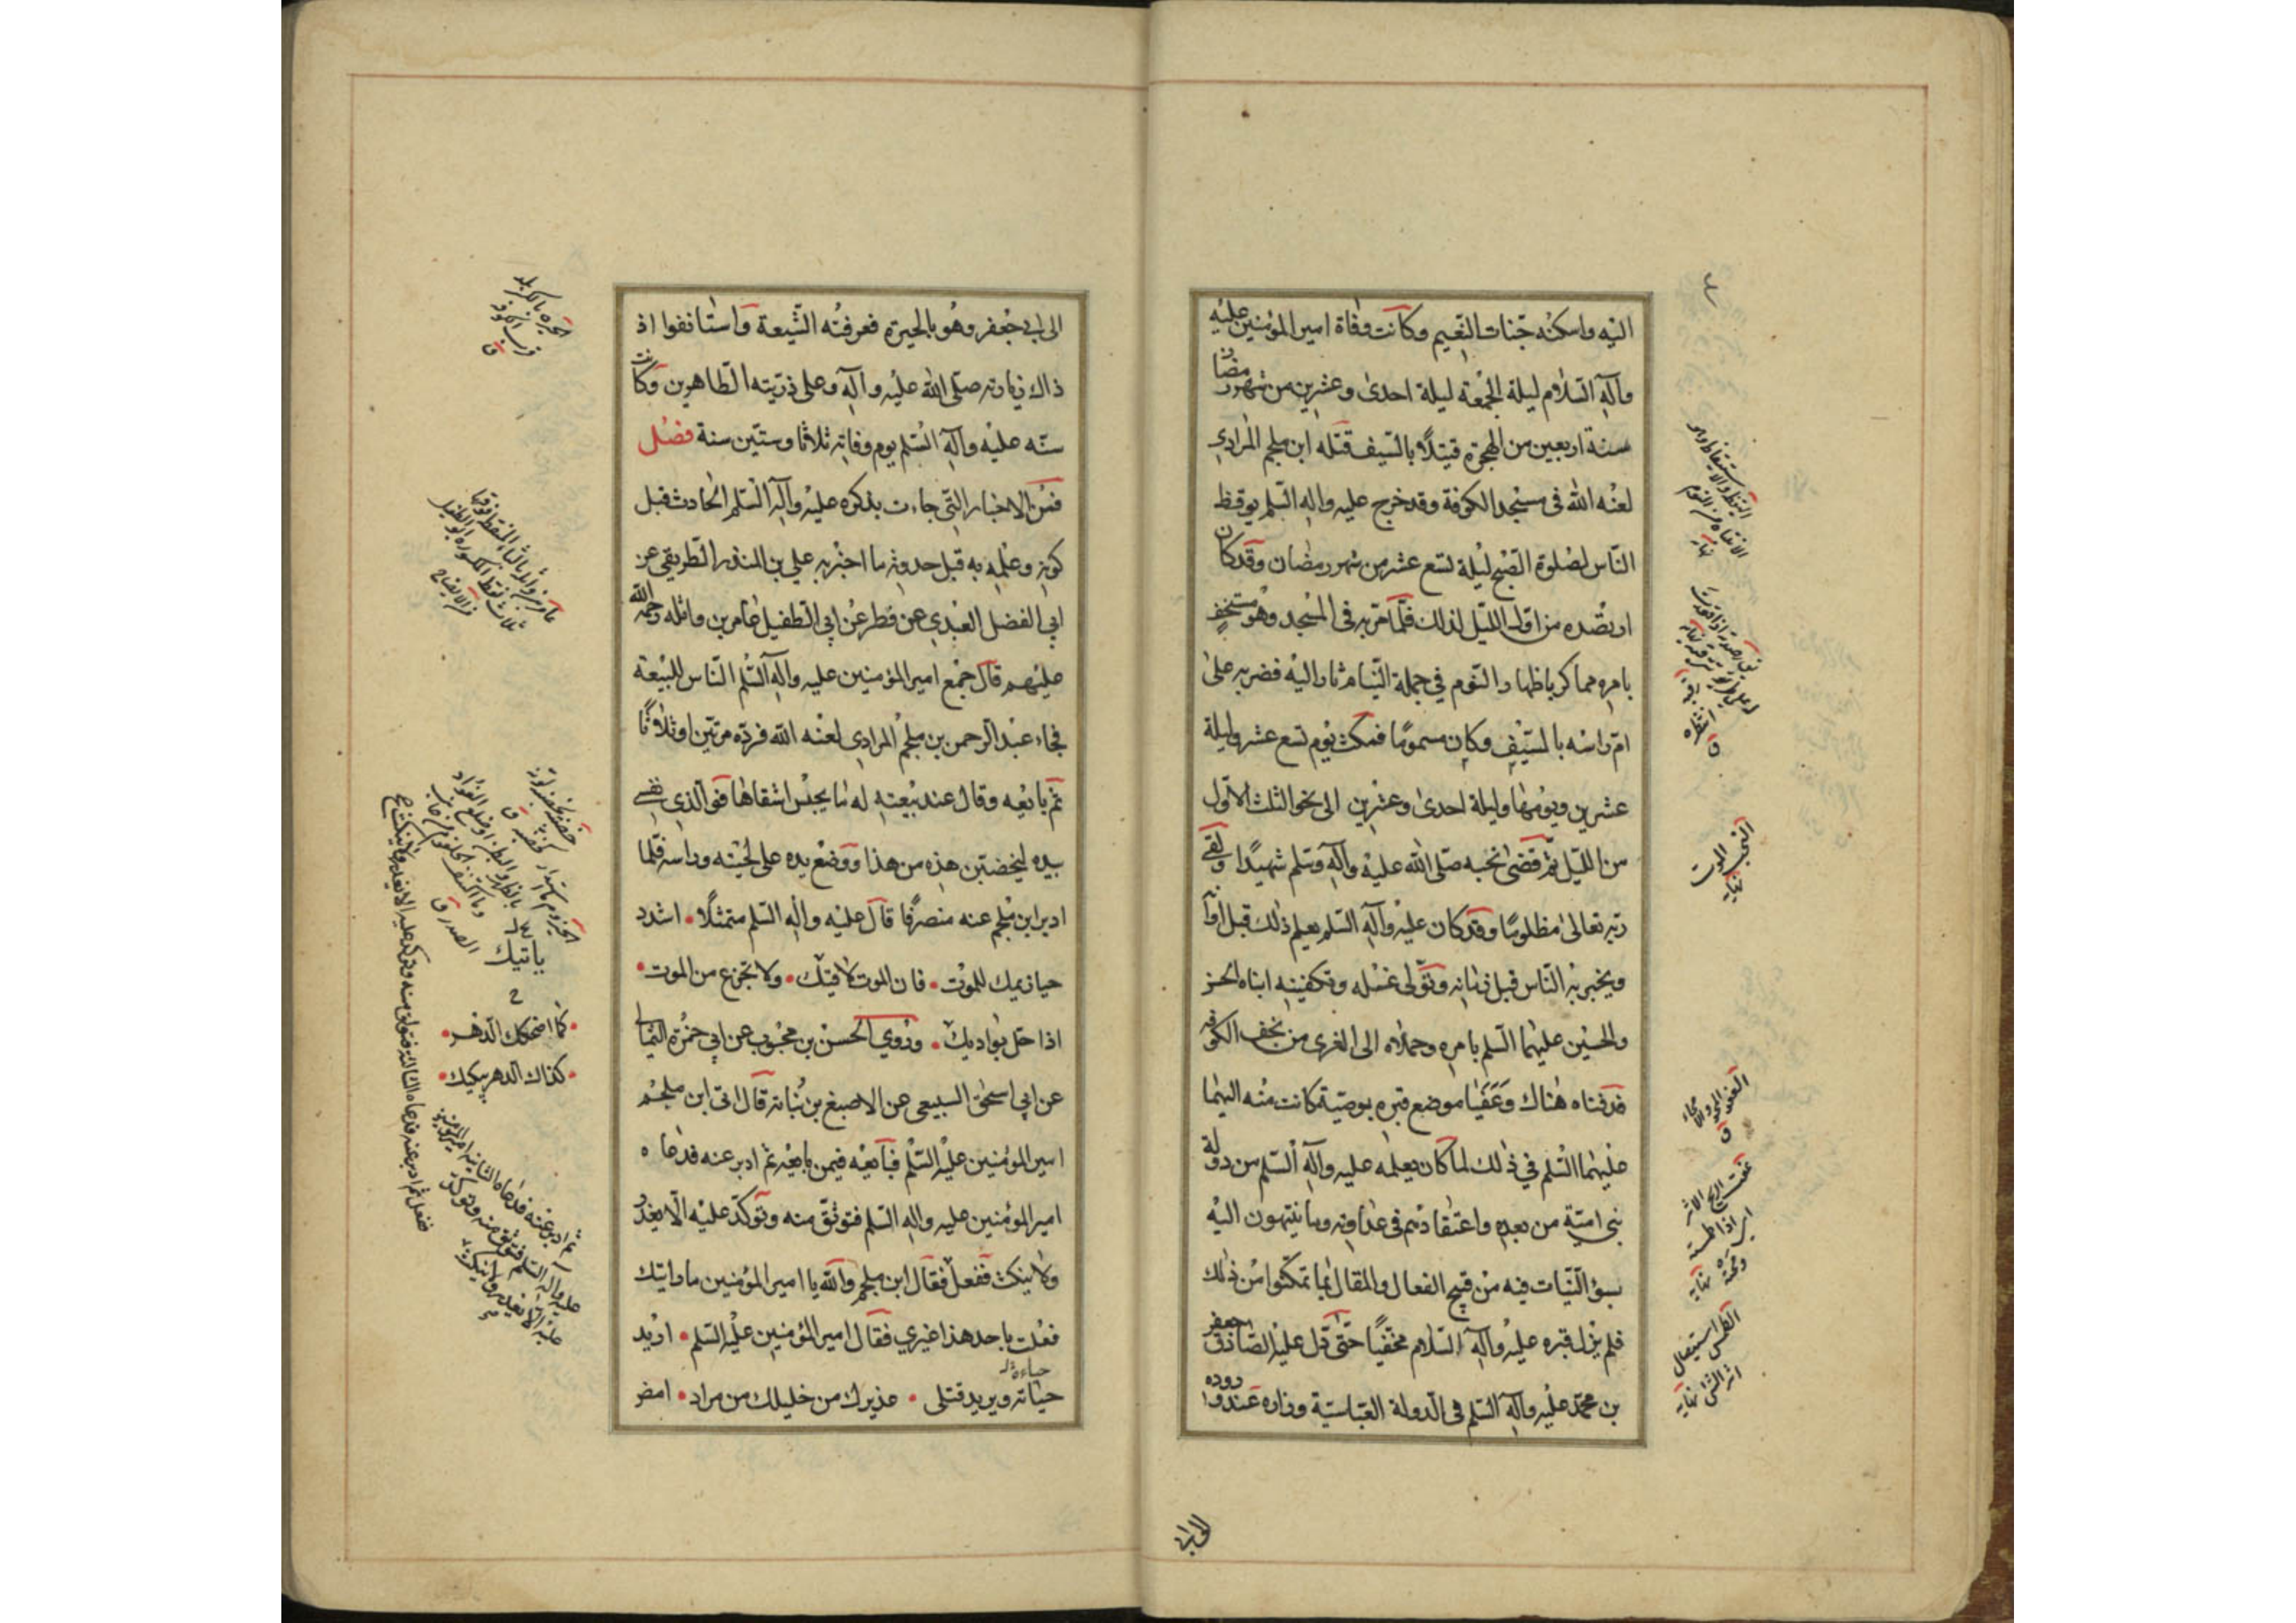 اليه واسكنه جنات النعيم وكانت وفاة امير المؤمنين عليه
وآله السّلام ليلة الجمعة ليلة احدى وعشرين من شهر رمضان
سنة اربعين من الهجرة قتيلًا بالسّيف قتله ابن ملجم المرادي
لعنه الله فى مسجد الكوفة وقد خرج عليه واله السّلم يوقظ
النّاس لصلوة الصّبح ليلة تسع عشر من شهر رمضان وقد كان
ارتصده من اوّل اللّيل لذلك فلمّا مرّ به فى المسجد وهو مستخفٍ
بامره مماكر باظهار النّوم في جملة النّيام ثار اليه فضربه على
امّ راسه بالسّيف وكان مسمومًا فمكث يوم تسع عشر وليلة
عشرين ويومها وليلة احدى وعشرين الى نحو الثلث الاوّل
من اللّيل ثمّ قضى نحبه صلّى الله عليه وآله وسّلم شهيدًا ولقى
ربّه تعالى مظلومًا وقد كان عليه وآله السّلم يعلم ذلك قبل اوانه
ويخبر به النّاس قبل زمانه وتولّى غسله وتكفينه ابناه الحسن
والحسين عليهما السّلم بامره وحملاه الى الغرى من نجف الكوفه
فدفناه هناك وعَفَّيا موضع قبره بوصيّة كانت منه اليهما
عليهما السّلم في ذلك لما كان يعلمه عليه وآله السّلم من دولة
بني اميّة من بعده واعتقادهم فى عداوته وما ينتهون اليه
بسؤ النّيّات فيه من قبيح الفعال والمقال بما تمكّنوا من ذلك
فلم يزل قبره عليه وآله السّلام مختفيًا حتّى دلّ عليه الصّادق جعفر
بن محمّد عليه وآله السّلم فى الدولة العبّاسيّة وزاره عند وروده
النحب الموت
نهايه
الى ابي جعفر وهو بالحيرة فعرفته الشّيعة واستانفوا اذ
ذاك زيارته صلّى الله عليه وآله وعلى ذرّيته الطّاهرين وكانت
سنّه عليه وآله السّلم يوم وفاته ثلاثا وستّين سنة فصل
فمن الاخبار التّي جاءت بذكره عليه وآله السّلم الحادث قبل
كونه وعلمه به قبل حدوثه ما اخبر به علي بن المنذر الطّريقي عن
ابي الفضل العبدي عن فطر عن ابي الطّفيل عامر بن واثله رحمة الله
عليهم قال جمع امير المؤمنين عليه وآله السّلم النّاس للبيعة
فجاء عبد الرحمن بن ملجم المرادي لعنه الله فردّه مرّتين او ثلاثًا
ثمّ بايعه وقال عند بيعته له ما يحبس اشقاها فو الّذي نفسي
بيده ليخضبّن هذه من هذا ووضع يده على لحيته وراسه فلمّا
ادبر ابن ملجم عنه منصرفا قال عليه واله السّلم متمثّلًا • اشدد
حيازيمك للموت • فان الموت لاقيك • ولا تجزع من الموت •
اذا حلّ بواديك • وروي الحسن بن محبوب عن ابي حمزة الثمالي
عن ابي اسحق السبيعي عن الاصبغ بن نباته قال اتى ابن ملجم
امير المؤمنين عليه السّلم فبايعه فيمن بايعه ثم ادبر عنه فدعاه
امير المؤمنين عليه واله السّلم فتوثّق منه وتوكّد عليه الّا يغدر
ولا ينكث ففعل فقال ابن ملجم والله يا امير المؤمنين ما رايتك
فعلت باحد هذا غيري فقال امير المؤمنين عليه السّلم • اريد
حباءه
حياته ويريد قتلى • عذيرك من خليلك من مراد • امض
ياتيك
• كما اضحكك الدّهر •
• كذاك الدهر يبكيك •
ثم ادبر عنه فدعاه الثانيه امير المؤمنين
عليه واله السّلم فتوثّق منه وتوكّد
عليه الّا يغدر ولا ينكث
ففعل ثم ادبر عنه فدعاه الثالثة فتوثق منه وتوكد عليه الا يغدر ولا ينكث